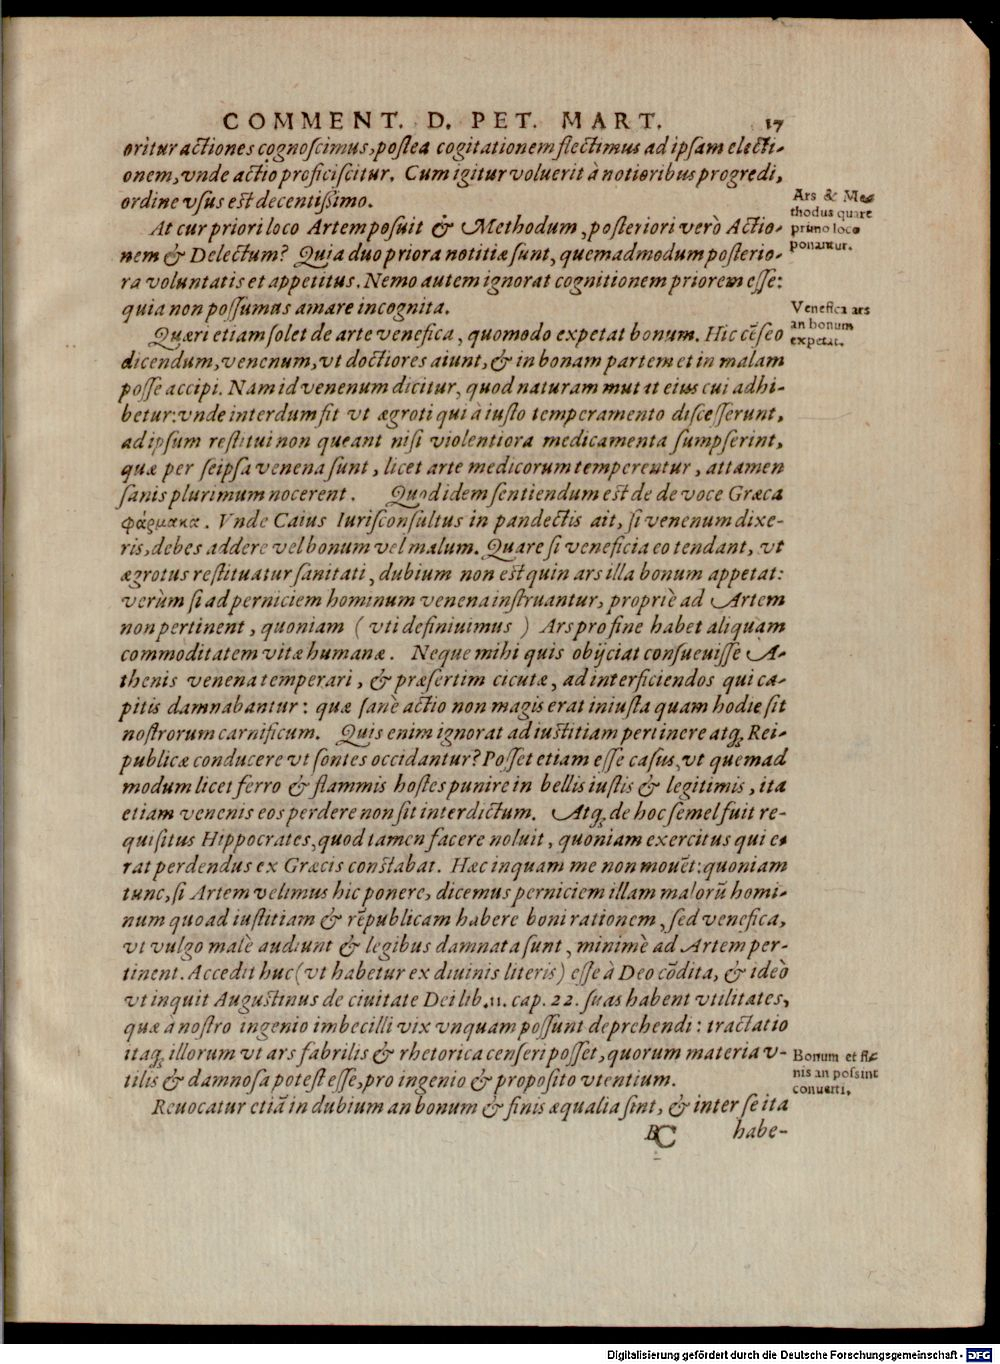 COMMENT. D. PET. MART. 17
oritur actiones cognoscimus, postea cogitationem flectimus ad ipsam electi-
onem, vnde actio proficiscitur. Cum igitur voluerit à notioribus progredi,
ordine vsus est decentissimo.
Ars & Me-
thodus quare
primo loco
ponantur.
At cur priori loco Artem posuit & Methodum, posteriori verò Actio-
nem & Delectum? Quia duo priora notitiæ sunt, quemadmodum posterio-
ra voluntatis et appetitus. Nemo autem ignorat cognitionem priorem esse:
quia non possumus amare incognita.
Venefica ars
an bonum
expetat.
Quæri etiam solet de arte venefica, quomodo expetat bonum. Hic cēseo
dicendum, venenum, vt doctiores aiunt, & in bonam partem et in malam
posse accipi. Nam id venenum dicitur, quod naturam mutat eius cui adhi-
betur: vnde interdum fit vt ægroti qui à iusto temperamento discesserunt,
ad ipsum restitui non queant nisi violentiora medicamenta sumpserint,
quæ per seipsa venena sunt, licet arte medicorum temperentur, attamen
sanis plurimum nocerent. Quod idem sentiendum est de de voce Græca
φάρμακα. Vnde Caius Iurisconsultus in pandectis ait, si venenum dixe-
ris, debes addere vel bonum vel malum. Quare si veneficia eo tendant, vt
ægrotus restituatur sanitati, dubium non est quin ars illa bonum appetat:
verùm si ad perniciem hominum venena instruantur, propriè ad Artem
non pertinent, quoniam ( vti definiuimus ) Ars pro fine habet aliquam
commoditatem vitæ humanæ. Neque mihi quis obijciat consueuisse A-
thenis venena temperari, & præsertim cicutæ, ad interficiendos qui ca-
pitis damnabantur: quæ sanè actio non magis erat iniusta quam hodie sit
nostrorum carnificum. Quis enim ignorat ad iustitiam pertinere atq; Rei-
publicæ conducere vt sontes occidantur? Posset etiam esse casus, vt quemad
modum licet ferro & flammis hostes punire in bellis iustis & legitimis, ita
etiam venenis eos perdere non sit interdictum. Atq; de hoc semel fuit re-
quisitus Hippocrates, quod tamen facere noluit, quoniam exercitus qui e-
rat perdendus ex Græcis constabat. Hæc inquam me non mouēt: quoniam
tunc, si Artem velimus hic ponere, dicemus perniciem illam malorū homi-
num quoad iustitiam & rēpublicam habere boni rationem, sed venefica,
vt vulgo malè audiunt & legibus damnata sunt, minimè ad Artem per-
tinent. Accedit huc (vt habetur ex diuinis literis) esse à Deo cōdita, & ideò
vt inquit Augustinus de ciuitate Dei lib. 11. cap. 22. suas habent vtilitates,
quæ à nostro ingenio imbecilli vix vnquam possunt deprehendi: tractatio
itaq; illorum vt ars fabrilis & rhetorica censeri posset, quorum materia v-
tilis & damnosa potest esse, pro ingenio & proposito vtentium.
Bonum et fi-
nis an possint
conuerti.
Reuocatur etiā in dubium an bonum & finis æqualia sint, & inter se ita
C habe-
Digitalisierung gefördert durch die Deutsche Forschungsgemeinschaft - DFG